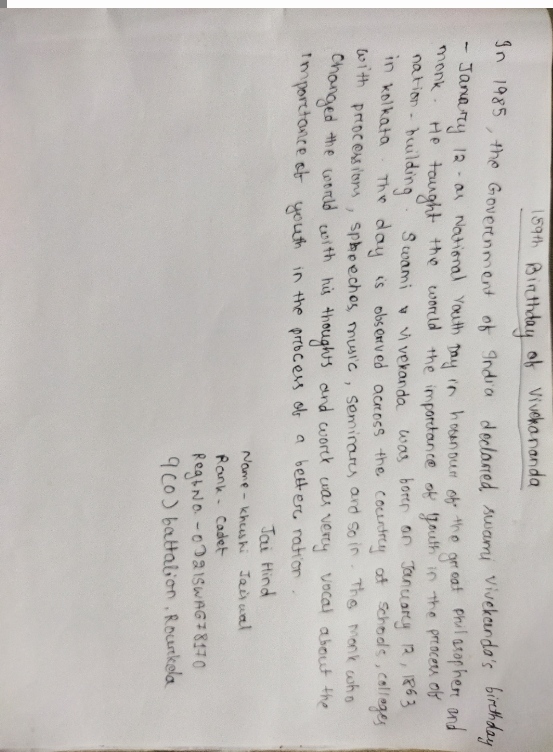 159th Birthday of Vivekananda
In 1985, the Government of India declared swami Vivekanda's birthday
- January 12 - as National Youth Day in hounour of the great philosopher and
monk. He taught the world the importance of youth in the process of
nation-building. Swami Vivekanda was born on January 12, 1863
in kolkata. The day is observed across the country at schools, colleges
with processions, speeches, music, seminars and so in. The monk who
changed the world with his thoughts and work was very vocal about the
importance of youth in the process of a better nation.
Jai Hind
Name - Khushi Jaiswal
Rank - Cadet
Regt No. - OD21SWAG78170
9(O) battalion, Rourkela